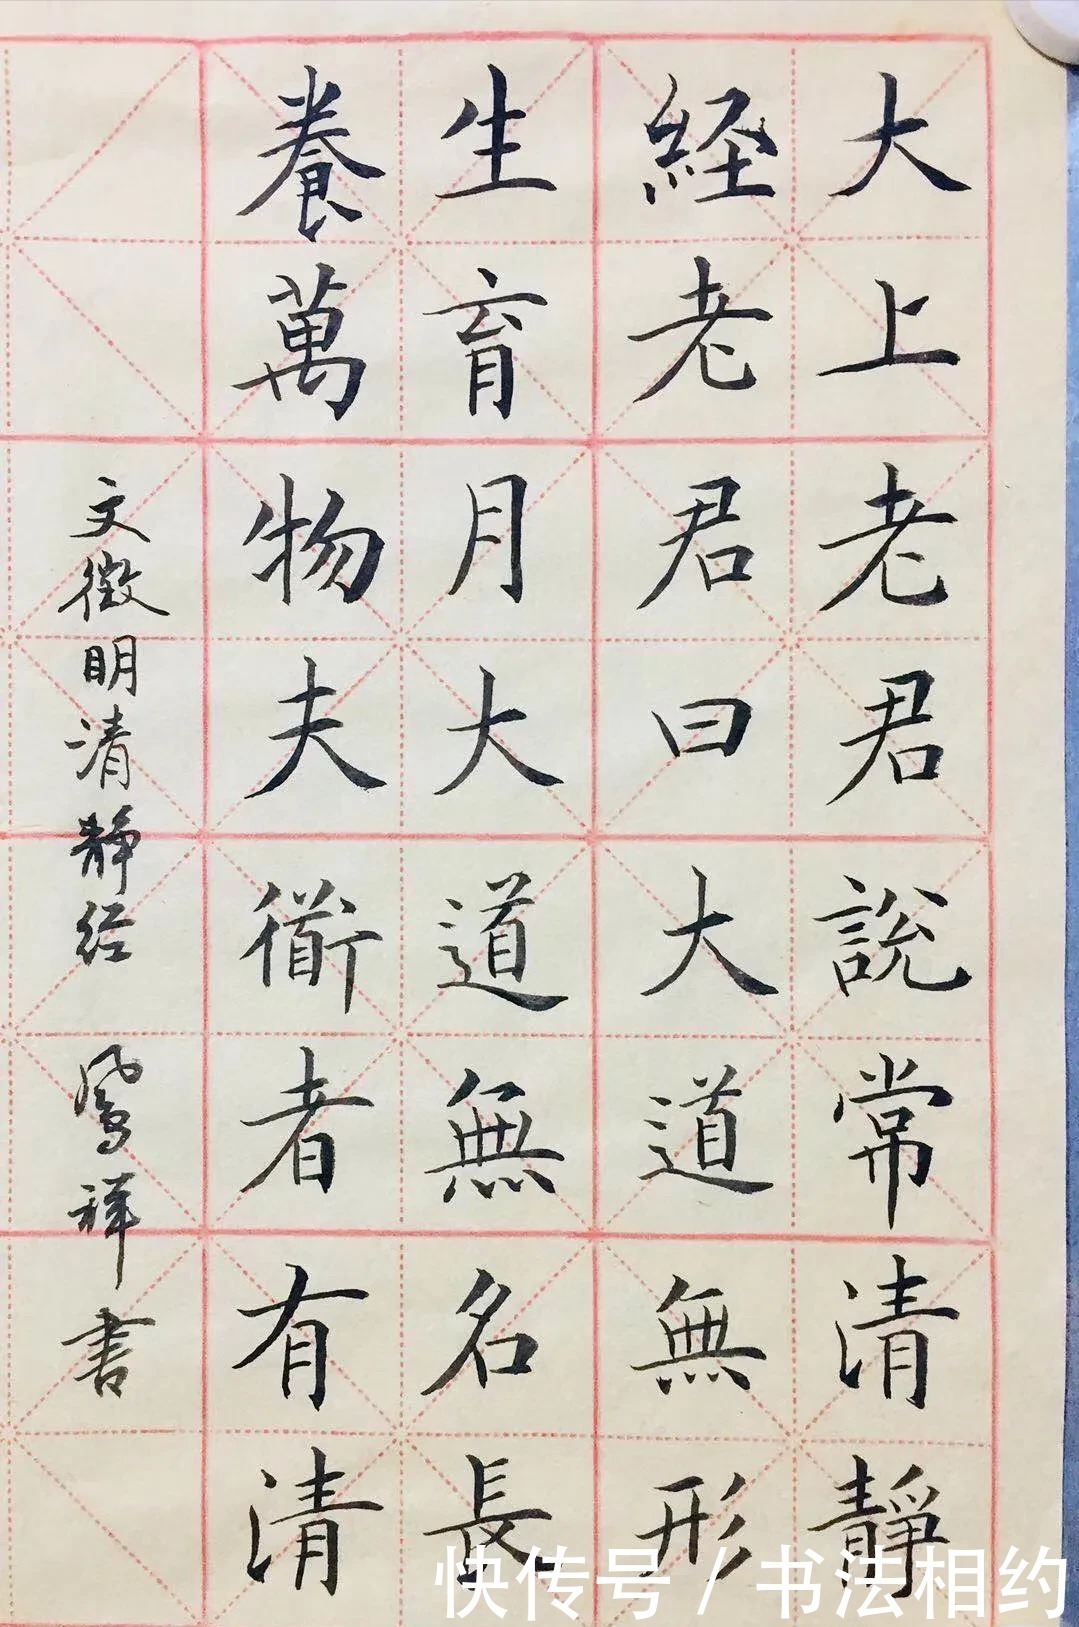 大上老君說常清靜
経老君曰大道無形
生育月大道無名長
養萬物夫衜者有清
文徵明清静经 鳳祥書
快传号 / 书法相约